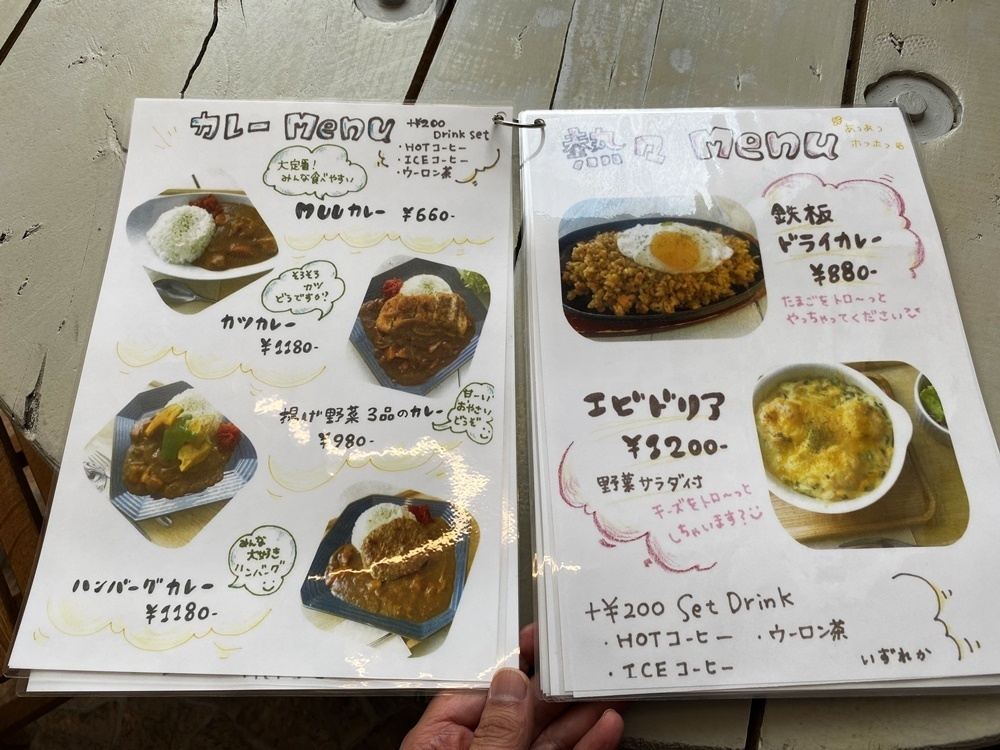 カレー Menu
+¥200
Drink Set
・HOTコーヒー
・ICEコーヒー
・ウーロン茶
大定番！
みんな食べやすい
カレー ¥660-
そろそろ
カツ
どうですか?
カツカレー
¥1180-
揚げ野菜3品のカレー
¥980-
甘ーい
おやさい
どうぞ
みんな
大好き
ハンバーグ
ハンバーグカレー
¥1180-
熱々 Menu
あっあっ
ホッホッ
鉄板
ドライカレー
¥880-
たまごをトロ〜っと
やっちゃってください
エビドリア
¥1200-
野菜サラダ付
チーズをトロ〜っと
しちゃいます?
+¥200 Set Drink
・HOTコーヒー ・ウーロン茶
・ICEコーヒー
いずれか